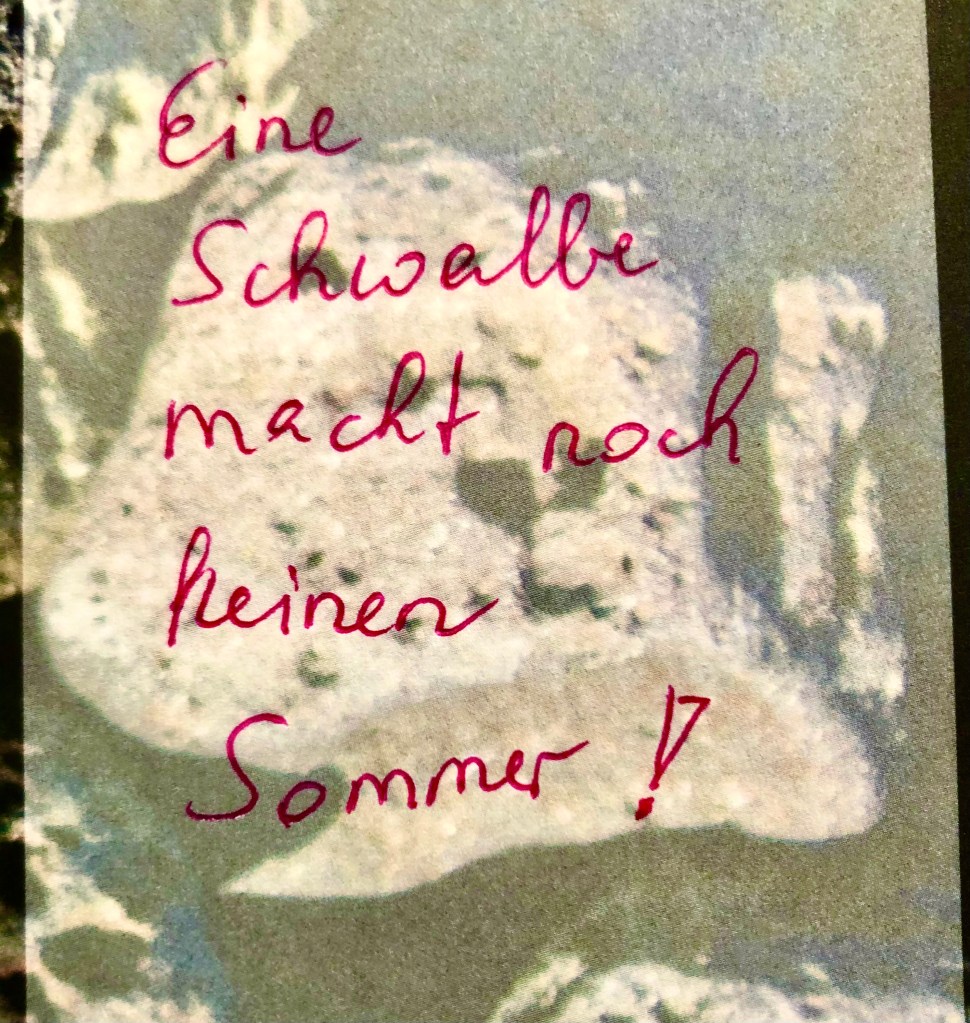 Eine
Schwalbe
macht noch
keinen
Sommer!